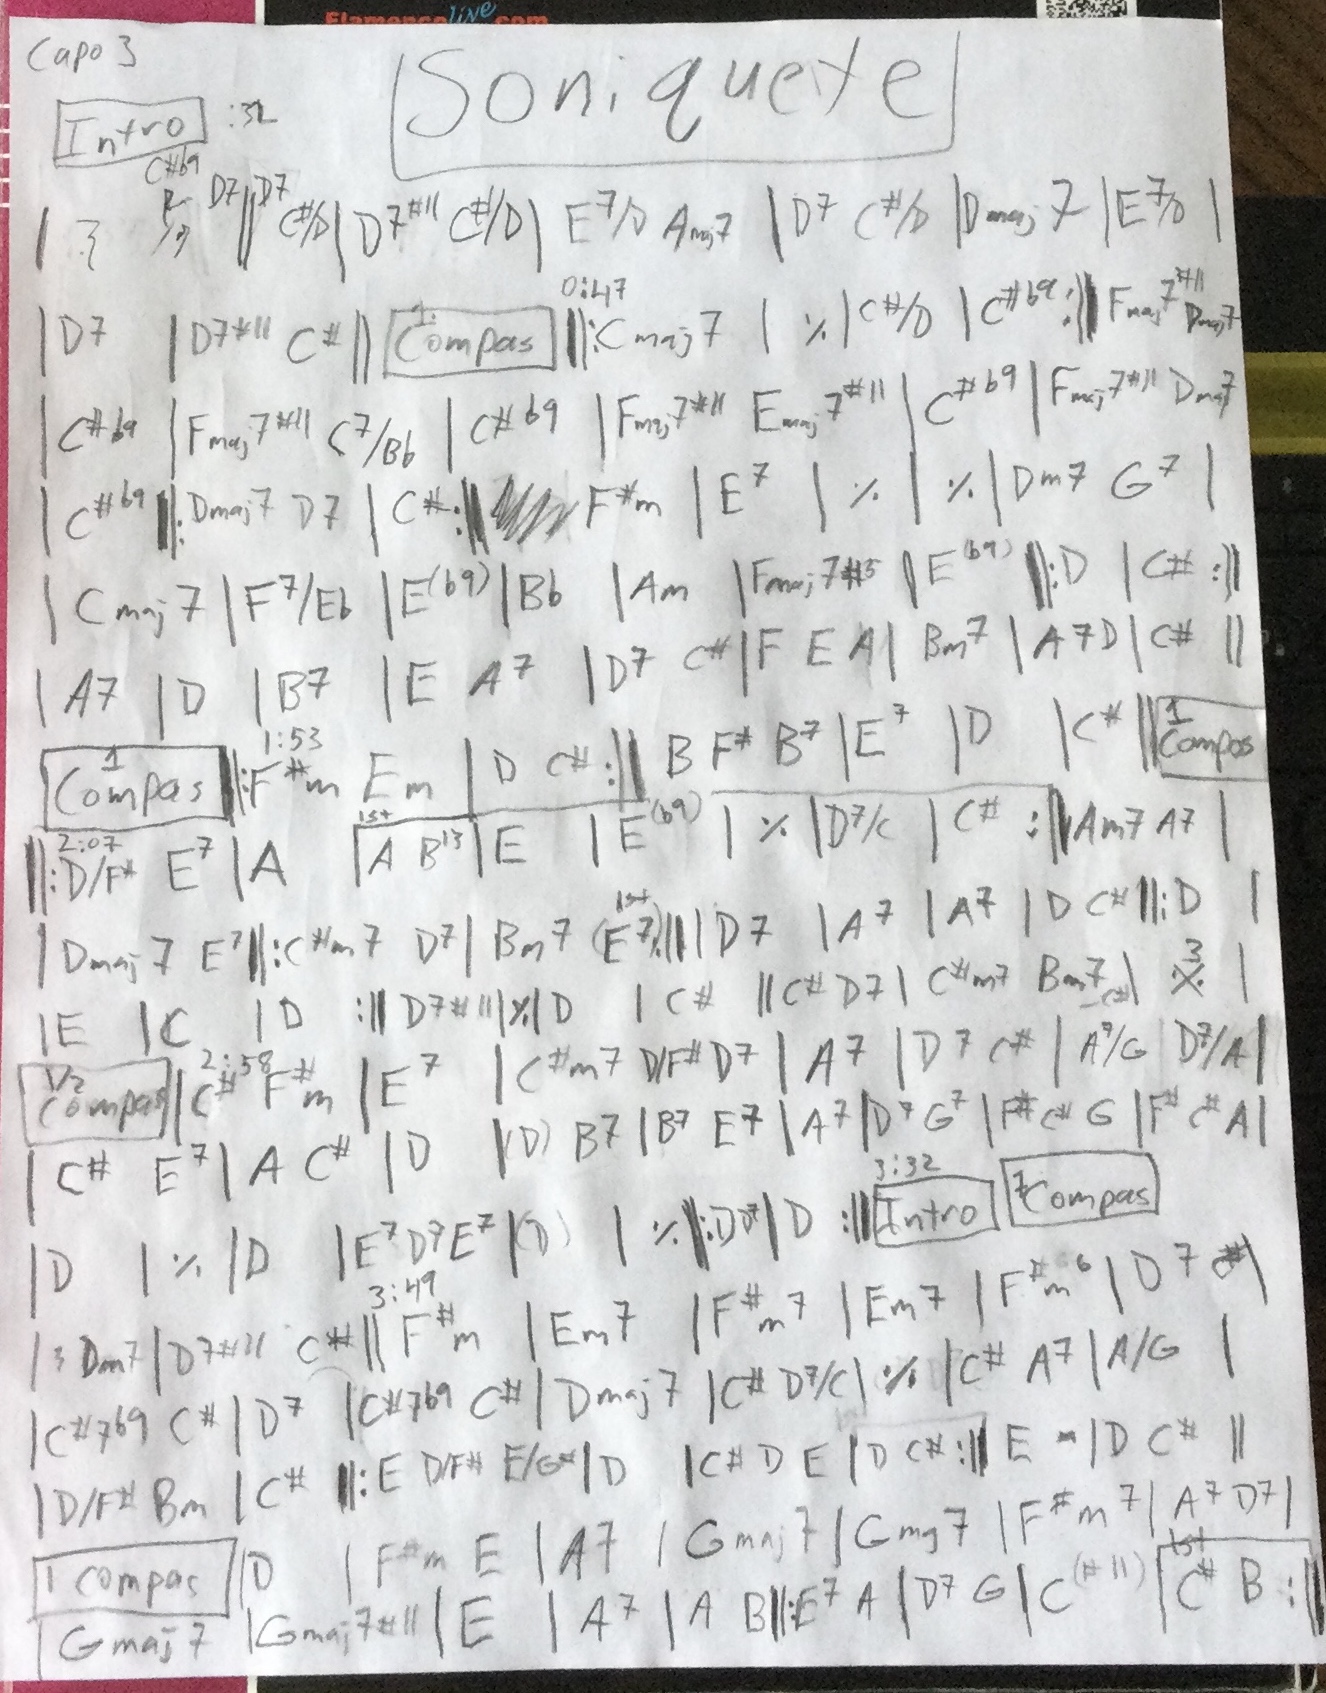 Flamencolive.com
Capo 3
Soniquete
Intro :32
C#b9
| 𝄽 D7 || D7 C#/D | D7#11 C#/D | E7/D Amaj7 | D7 C#/D | Dmaj7 | E7/D |
0:47
| D7 | D7#11 C# || 1 Compas ||: Cmaj7 | % | C#/D | C#b9 :|| Fmaj7#11 Dmaj7
| C#b9 | Fmaj7#11 C7/Bb | C#b9 | Fmaj7#11 Emaj7#11 | C#b9 | Fmaj7#11 Dmaj7
| C#b9 ||: Dmaj7 D7 | C# :|| F#m | E7 | % | % | Dm7 G7 |
| Cmaj7 | F7/Eb | E(b9) | Bb | Am | Fmaj7#5 | E(b9) ||: D | C# :||
| A7 | D | B7 | E A7 | D7 C# | F E A | Bm7 | A7 D | C# ||
1:53
1 Compas ||: F#m Em | D C# :|| B F# B7 | E7 | D | C# || 1 Compas
2:07 1st
||: D/F# E7 | A | A B13 | E | E(b9) | % | D7/C | C# :|| Am7 A7 |
1st
| Dmaj7 E7 ||: C#m7 D7 | Bm7 (E7) :|| | D7 | A7 | A7 | D C# ||: D |
| E | C | D :|| D7#11 | % | D | C# || C# D7 | C#m7 Bm7 C# | 3 % |
2:58
1/2 Compas | C# F#m | E7 | C#m7 D/F# D7 | A7 | D7 C# | A7/G | D7/A |
| C# E7 | A C# | D | (D) B7 | B7 E7 | A7 | D7 G7 | F# C# G | F# C# A |
3:32
| D | % | D | E7 D7 E7 | (D) | % ||: D D7 | D :|| Intro 7 Compas
3:49
| 𝄽 Dm7 | D7#11 C# || F#m | Em7 | F#m7 | Em7 | F#m6 | D7 C# |
| C#7b9 C# | D7 | C#7b9 C# | Dmaj7 | C# D7/C | % | C# A7 | A/G |
| D/F# Bm | C# ||: E D/F# E/G# | D | C# D E | D C# :|| E | D C# ||
1 compas | D | F#m E | A7 | Gmaj7 | Gmaj7 | F#m7 | A7 D7 |
1st
| Gmaj7 | Gmaj7#11 | E | A7 | A B ||: E7 A | D7 G | C(#11) | C# B :||